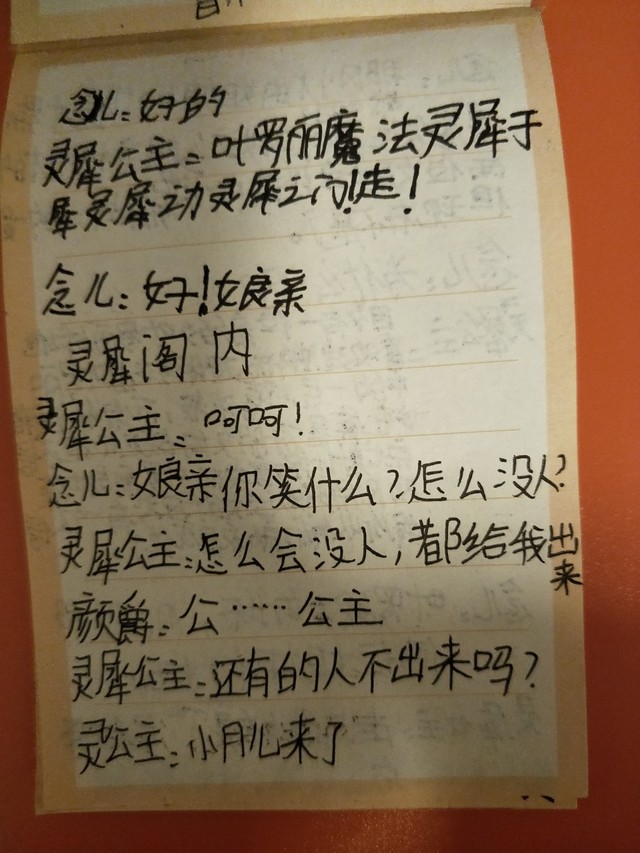 念儿：好的
灵犀公主：叶罗丽魔法灵犀于
犀灵犀动灵犀之门！走！
念儿：好！娘亲
灵犀阁内
灵犀公主：呵呵！
念儿：娘亲你笑什么？怎么没人？
灵犀公主：怎么会没人，都给我出
来
颜爵：公……公主
灵犀公主：还有的人不出来吗？
灵公主：小月儿来了